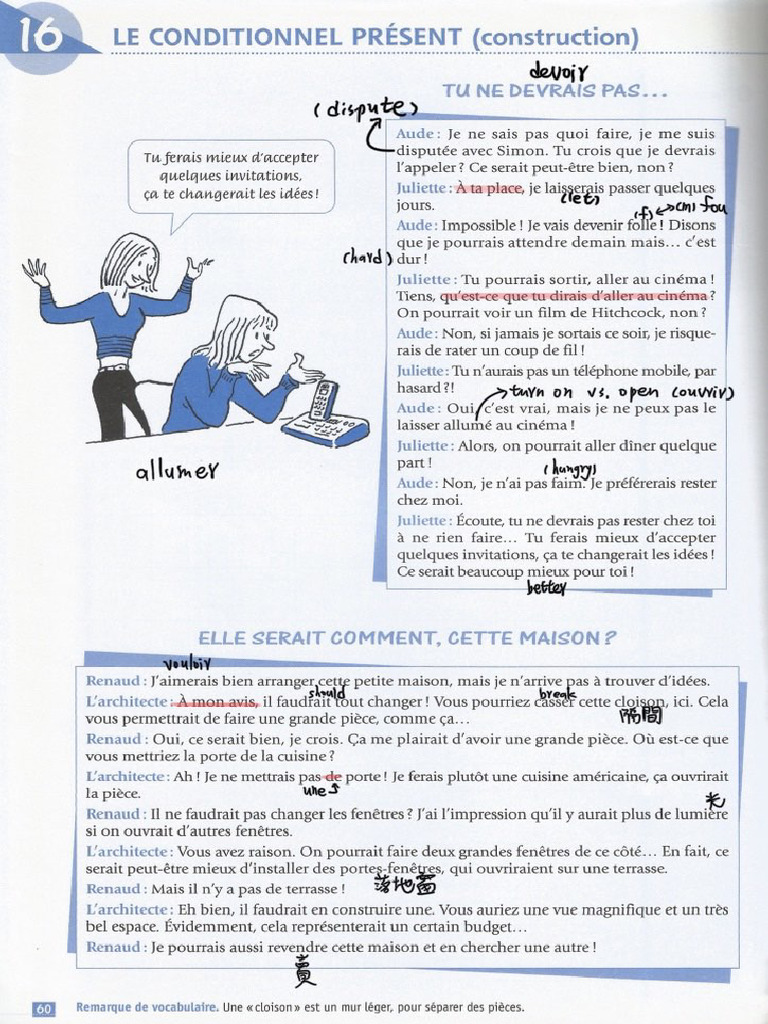 16
LE CONDITIONNEL PRÉSENT (construction)
devoir
TU NE DEVRAIS PAS...
(dispute)
Tu ferais mieux d'accepter
quelques invitations,
ça te changerait les idées !
Aude : Je ne sais pas quoi faire, je me suis
disputée avec Simon. Tu crois que je devrais
l'appeler ? Ce serait peut-être bien, non ?
Juliette : À ta place, je laisserais passer quelques
(let)
jours.
(f) cmi fou
Aude : Impossible ! Je vais devenir folle ! Disons
que je pourrais attendre demain mais... c'est
(hard)
dur !
Juliette : Tu pourrais sortir, aller au cinéma !
Tiens, qu'est-ce que tu dirais d'aller au cinéma ?
On pourrait voir un film de Hitchcock, non ?
Aude : Non, si jamais je sortais ce soir, je risque-
rais de rater un coup de fil !
Juliette : Tu n'aurais pas un téléphone mobile, par
hasard ?!
turn on vs. open (ouvrir)
Aude : Oui, c'est vrai, mais je ne peux pas le
laisser allumé au cinéma !
allumer
Juliette : Alors, on pourrait aller dîner quelque
part !
(hungry)
Aude : Non, je n'ai pas faim. Je préférerais rester
chez moi.
Juliette : Écoute, tu ne devrais pas rester chez toi
à ne rien faire... Tu ferais mieux d'accepter
quelques invitations, ça te changerait les idées !
Ce serait beaucoup mieux pour toi !
better
ELLE SERAIT COMMENT, CETTE MAISON ?
vouloir
Renaud : J'aimerais bien arranger cette petite maison, mais je n'arrive pas à trouver d'idées.
should
break
L'architecte : À mon avis, il faudrait tout changer ! Vous pourriez casser cette cloison, ici. Cela
隔間
vous permettrait de faire une grande pièce, comme ça...
Renaud : Oui, ce serait bien, je crois. Ça me plairait d'avoir une grande pièce. Où est-ce que
vous mettriez la porte de la cuisine ?
L'architecte : Ah ! Je ne mettrais pas de porte ! Je ferais plutôt une cuisine américaine, ça ouvrirait
une
la pièce.
光
Renaud : Il ne faudrait pas changer les fenêtres ? J'ai l'impression qu'il y aurait plus de lumière
si on ouvrait d'autres fenêtres.
L'architecte : Vous avez raison. On pourrait faire deux grandes fenêtres de ce côté... En fait, ce
serait peut-être mieux d'installer des portes-fenêtres, qui ouvriraient sur une terrasse.
落地窗
Renaud : Mais il n'y a pas de terrasse !
L'architecte : Eh bien, il faudrait en construire une. Vous auriez une vue magnifique et un très
bel espace. Évidemment, cela représenterait un certain budget...
Renaud : Je pourrais aussi revendre cette maison et en chercher une autre !
賣
60
Remarque de vocabulaire. Une « cloison » est un mur léger, pour séparer des pièces.